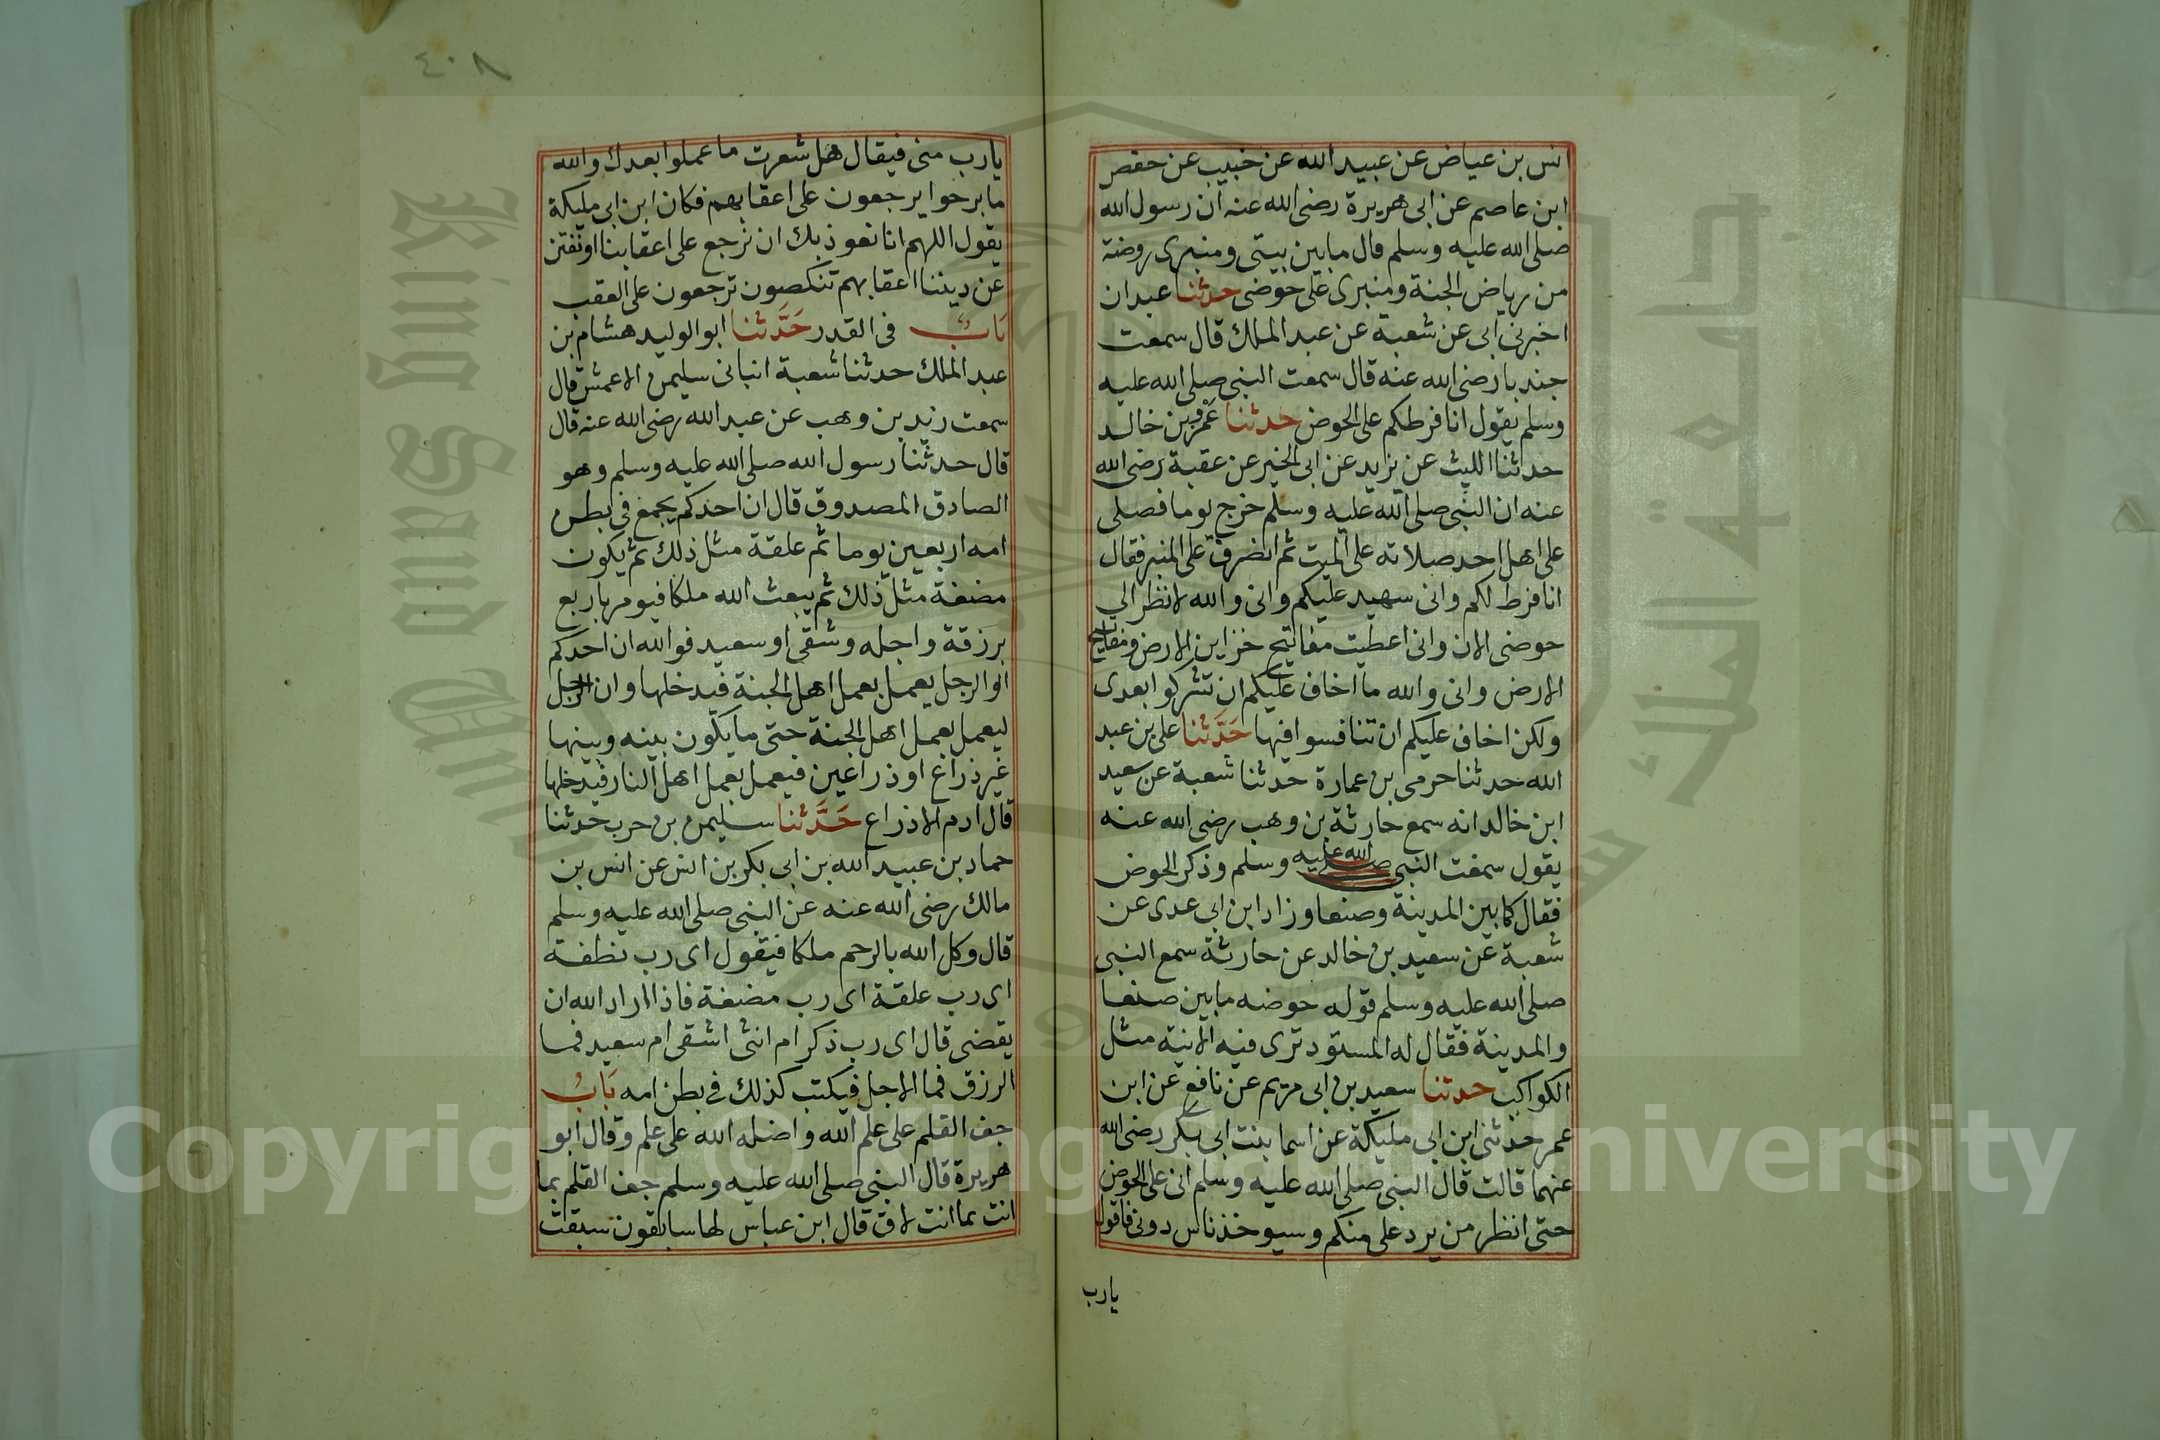 انس بن عياض عن عبيد الله عن خبيب عن حفص
ابن عاصم عن ابى هريرة رضى الله عنه ان رسول الله
صلى الله عليه وسلم قال ما بين بيتى ومنبرى روضة
من رياض الجنة ومنبرى على حوضى حدثنا عبدان
اخبرنى ابى عن شعبة عن عبد الملك قال سمعت
جندبا رضى الله عنه قال سمعت النبى صلى الله عليه
وسلم يقول انا فرطكم على الحوض حدثنا عمرو بن خالد
حدثنا الليث عن يزيد عن ابى الخير عن عقبة رضى الله
عنه ان النبى صلى الله عليه وسلم خرج يوما فصلى
على اهل احد صلاته على الميت ثم انصرف على المنبر فقال
انا فرط لكم وانى سهيد عليكم وانى والله لانظر الى
حوضى الان وانى اعطيت مفاتيح خزاين الارض ومفاتيح
الارض وانى والله ما اخاف عليكم ان تشركوا بعدى
ولكن اخاف عليكم ان تنافسوا فيها حدثنا على بن عبد
الله حدثنا حرمى بن عمارة حدثنا شعبة عن سعيد
ابن خالد انه سمع حارثة بن وهب رضى الله عنه
يقول سمعت النبى صلى الله عليه وسلم وذكر الحوض
فقال كما بين المدينة وصنعا وزاد ابن ابى عدى عن
شعبة عن سعيد بن خالد عن حارثة سمع النبى
صلى الله عليه وسلم قوله حوضه ما بين صنعا
والمدينة فقال له المستورد ترى فيه الانية مثل
الكواكب حدثنا سعيد بن ابى مريم عن نافع عن ابن
عمر حدثنى ابن ابى مليكة عن اسما بنت ابى بكر رضى الله
عنهما قالت قال النبى صلى الله عليه وسلم انى على الحوض
حتى انظر من يرد على منكم وسيوخذ ناس دونى فاقول
يارب
٤٠٨
يارب منى فيقال هل شعرت ما عملوا بعدك والله
ما برحوا يرجعون على اعقابهم فكان ابن ابى مليكة
يقول اللهم انا نعوذ بك ان نرجع على اعقابنا او نفتن
عن ديننا اعقابهم تنكصون ترجعون على العقب
باب فى القدر حدثنا ابو الوليد هشام بن
عبد الملك حدثنا شعبة انبانى سليمن الاعمش قال
سمعت زيد بن وهب عن عبد الله رضى الله عنه قال
قال حدثنا رسول الله صلى الله عليه وسلم وهو
الصادق المصدوق قال ان احدكم يجمع فى بطن
امه اربعين يوما ثم علقة مثل ذلك ثم يكون
مضغة مثل ذلك ثم يبعث الله ملكا فيومر باربع
برزقة واجله وشقى او سعيد فوالله ان احدكم
او الرجل يعمل بعمل اهل الجنة فيدخلها وان الرجل
ليعمل بعمل اهل الجنة حتى ما يكون بينه وبينها
غير ذراع او ذراعين فيعمل بعمل اهل النار فيدخلها
قال ادم الا ذراع حدثنا سليمن بن حرب حدثنا
حماد بن عبيد الله بن ابى بكر بن انس عن انس بن
مالك رضى الله عنه عن النبى صلى الله عليه وسلم
قال وكل الله بالرحم ملكا فيقول اى رب نطفة
اى رب علقة اى رب مضغة فاذا اراد الله ان
يقضى قال اى رب ذكر ام انثى اشقى ام سعيد فما
الرزق فما الاجل فيكتب كذلك فى بطن امه باب
جف القلم على علم الله واضله الله على علم وقال ابو
هريرة قال النبى صلى الله عليه وسلم جف القلم بما
انت بما انت لاق قال ابن عباس لها سابقون سبقت
Copyright © King Saud University
King Saud University
جامعة الملك سعود